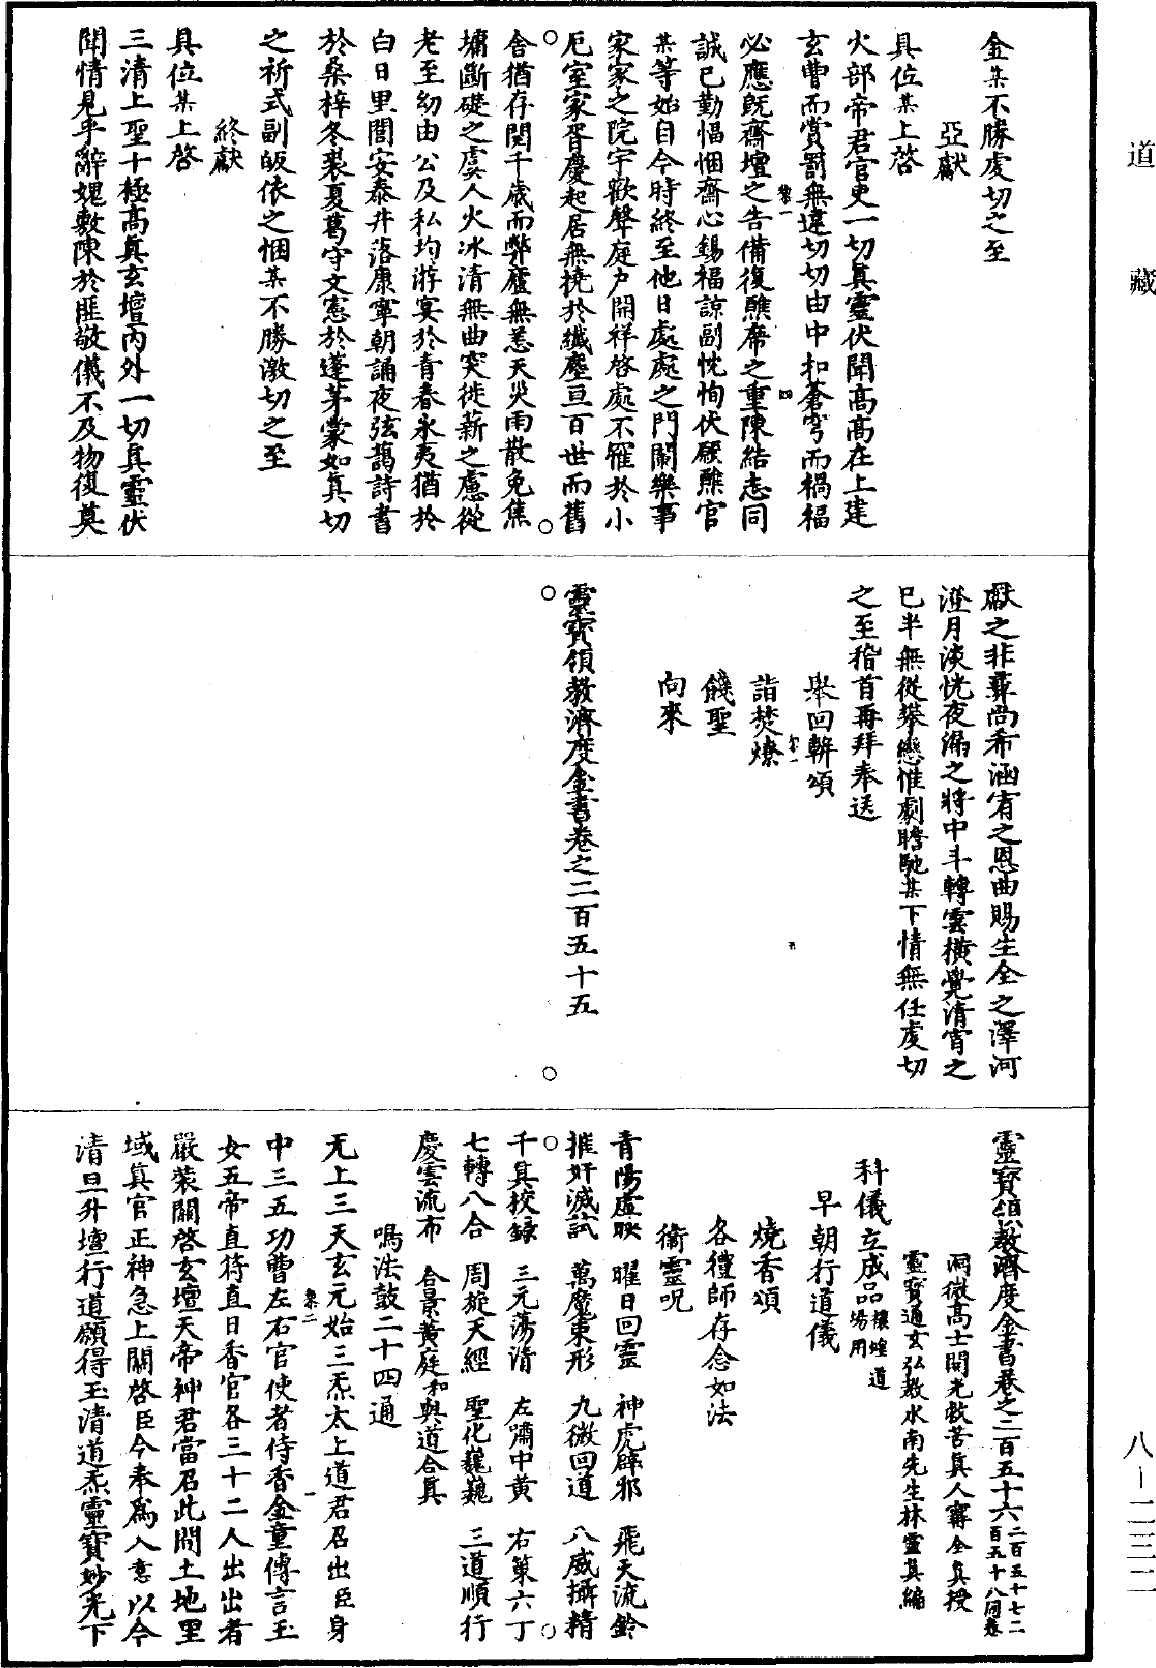 道藏
八—二三二
金某不勝虔切之至
亞獻
具位某上啓
火部帝君官吏一切眞靈伏聞高高在上建
玄曹而賞罰無違切切由中扣蒼穹而禍福
必應旣齋壇之告備復醮席之重陳結志同
誠已勤愊悃齋心錫福諒副忱恂伏願醮官
某等始自今時終至他日處處之門闌樂事
家家之院宇歡聲庭户開祥啓處不罹於小
厄室家胥慶起居無撓於纖塵亘百世而舊
舍猶存閱千歲而弊廬無恙天災雨散免焦
墉斷礎之虞人火冰清無曲突徙薪之慮從
老至幼由公及私均游宴於青春永夷猶於
白日里閭安泰井落康寧朝誦夜弦藹詩書
於桑梓冬裘夏葛守文憲於蓬茅蒙如眞切
之祈式副皈依之悃某不勝激切之至
終獻
具位某上啓
三清上聖十極高眞玄壇内外一切眞靈伏
聞情見乎辭媿敷陳於匪敬儀不及物復莫
獻之非彝尚希涵宥之恩曲賜生全之澤河
澄月淡恍夜漏之將中斗轉雲橫覺清宵之
已半無從攀戀惟劇瞻馳某下情無任虔切
之至稽首再拜奉送
舉回軿頌
詣焚燎
餞聖
向來
靈寶領教濟度金書卷之二百五十五
靈寶領教濟度金書卷之二百五十六二百五十七二百五十八同卷
洞微高士開光救苦眞人甯全眞授
靈寶通玄弘教水南先生林靈眞編
科儀立成品禳蝗道場用
早朝行道儀
燒香頌
各禮師存念如法
衞靈呪
青陽虛映 曜日回靈 神虎辟邪 飛天流鈴
摧奸滅試 萬魔束形 九微回道 八威攝精
千眞校錄 三元蕩清 左嘯中黃 右策六丁
七轉八合 周旋天經 聖化巍巍 三道順行
慶雲流布 合景黃庭 和與道合眞
鳴法鼓二十四通
无上三天玄元始三炁太上道君召出臣身
中三五功曹左右官使者侍香金童傳言玉
女五帝直符直日香官各三十二人出出者
嚴裝關啓玄壇天帝神君當召此間土地里
域眞官正神急上關啓臣今奉爲入意以今
清旦升壇行道願得玉清道炁靈寶妙光下